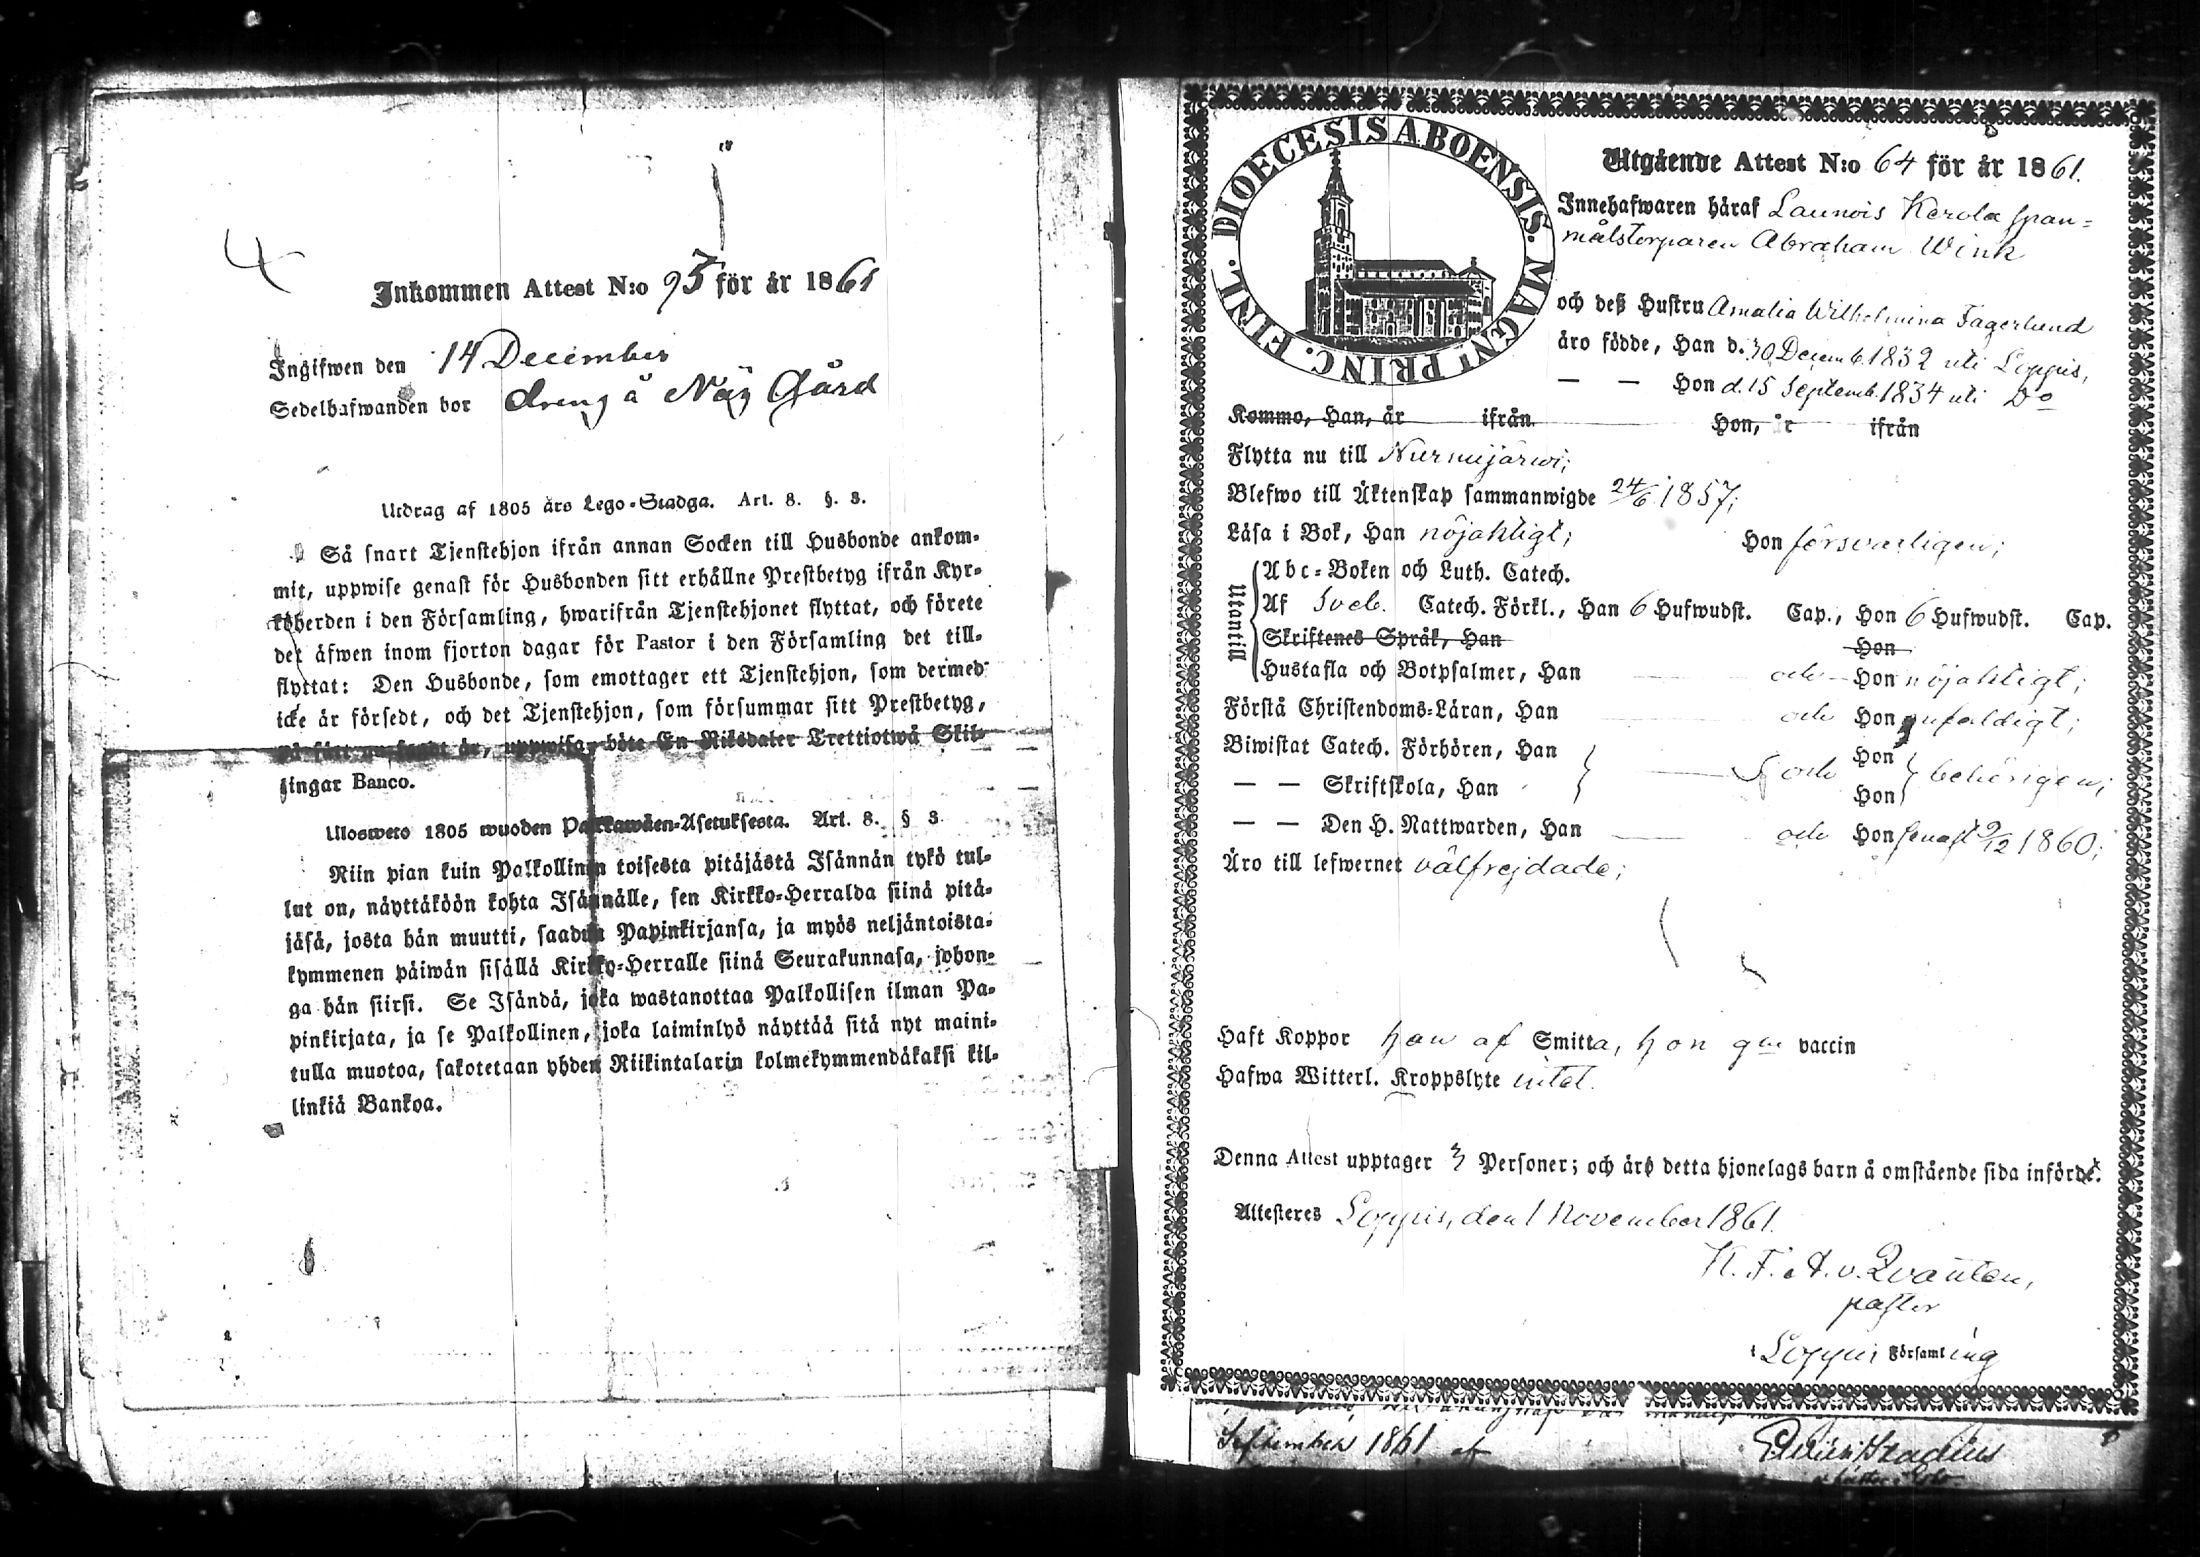 Inkommen Attest N:o 95 för år 1861
Ingifwen den 14 December
Sedelhafwanden bor dreng å Näs Gård
Utdrag af 1805 års Lego-Stadga. Art. 8. §. 3.
Så snart Tjenstehjon ifrån annan Socken till Husbonde ankom-
mit, uppwise genast för Husbonden sitt erhållne Prestbetyg ifrån Kyr-
koherden i den Församling, hwarifrån Tjenstehjonet flyttat, och förete
det äfwen inom fjorton dagar för Pastor i den Församling det till-
flyttat: Den Husbonde, som emottager ett Tjenstehjon, som dermed
icke är försedt, och det Tjenstehjon, som försummar sitt Prestbetyg,
på sätt nu sagdt är, uppwisa, böte En Riksdaler Trettiotwå Skil-
lingar Banco.
Ulosweto 1805 wuoden Palkawäen-Asetuksesta. Art. 8. § 3.
Niin pian kuin Palkollinen toisesta pitäjästä Isännän tykö tul-
lut on, näyttäköön kohta Isännälle, sen Kirkko-Herralda siinä pitä-
jäsä, josta hän muutti, saadun Papinkirjansa, ja myös neljäntoista-
kymmenen päiwän sisällä Kirkko-Herralle siinä Seurakunnasa, johon-
ga hän siirsi. Se Isändä, joka wastanottaa Palkollisen ilman Pa-
pinkirjata, ja se Palkollinen, joka laiminlyö näyttää sitä nyt maini-
tulla muotoa, sakotetaan yhden Riikintalarin kolmekymmendäkaksi kil-
linkiä Bankoa.
DIOECESIS ABOENSIS. MAGNI PRINC. FINL.
Utgående Attest N:o 64 för år 1861.
Innehafwaren häraf Launois Kerola span-
målstorparen Abraham Wink
och deß Hustru Amalia Wilhelmina Fagerlund
äro födde, Han d. 30 Decemb. 1832 uti Loppis,
— — Hon d. 15 Septemb. 1834 uti Do
Kommo, Han, år ifrån Hon, år ifrån
Flytta nu till Nurmijärwi;
Blefwo till Äktenskap sammanwigde 24/6 1857;
Läsa i Bok, Han nöjaktigt; Hon försvarligen;
Utantill
Abc-Boken och Luth. Catech.
Af Sveb. Catech. Förkl., Han 6 Hufwudst. Cap., Hon 6 Hufwudst. Cap.
Skriftenes Språk, Han Hon
Hustafla och Botpsalmer, Han och Hon nöjaktigt;
Förstå Christendoms-Läran, Han och Hon enfaldigt;
Biwistat Catech. Förhören, Han Hon
— — Skriftskola, Han och Hon behörigen;
— — Den H. Nattwarden, Han och Hon senast 9/12 1860;
Äro till lefwernet välfrejdade;
Haft Koppor han af Smitta, hon gm vaccin
Hafwa Witterl. Kroppslyte intet.
Denna Attest upptager 3 Personer; och äro detta hjonelags barn å omstående sida införde.
Attesteres Loppis, den 1 November 1861.
K. F. A. v. Qvanten,
pastor
i Loppis Församling
September 1861 af